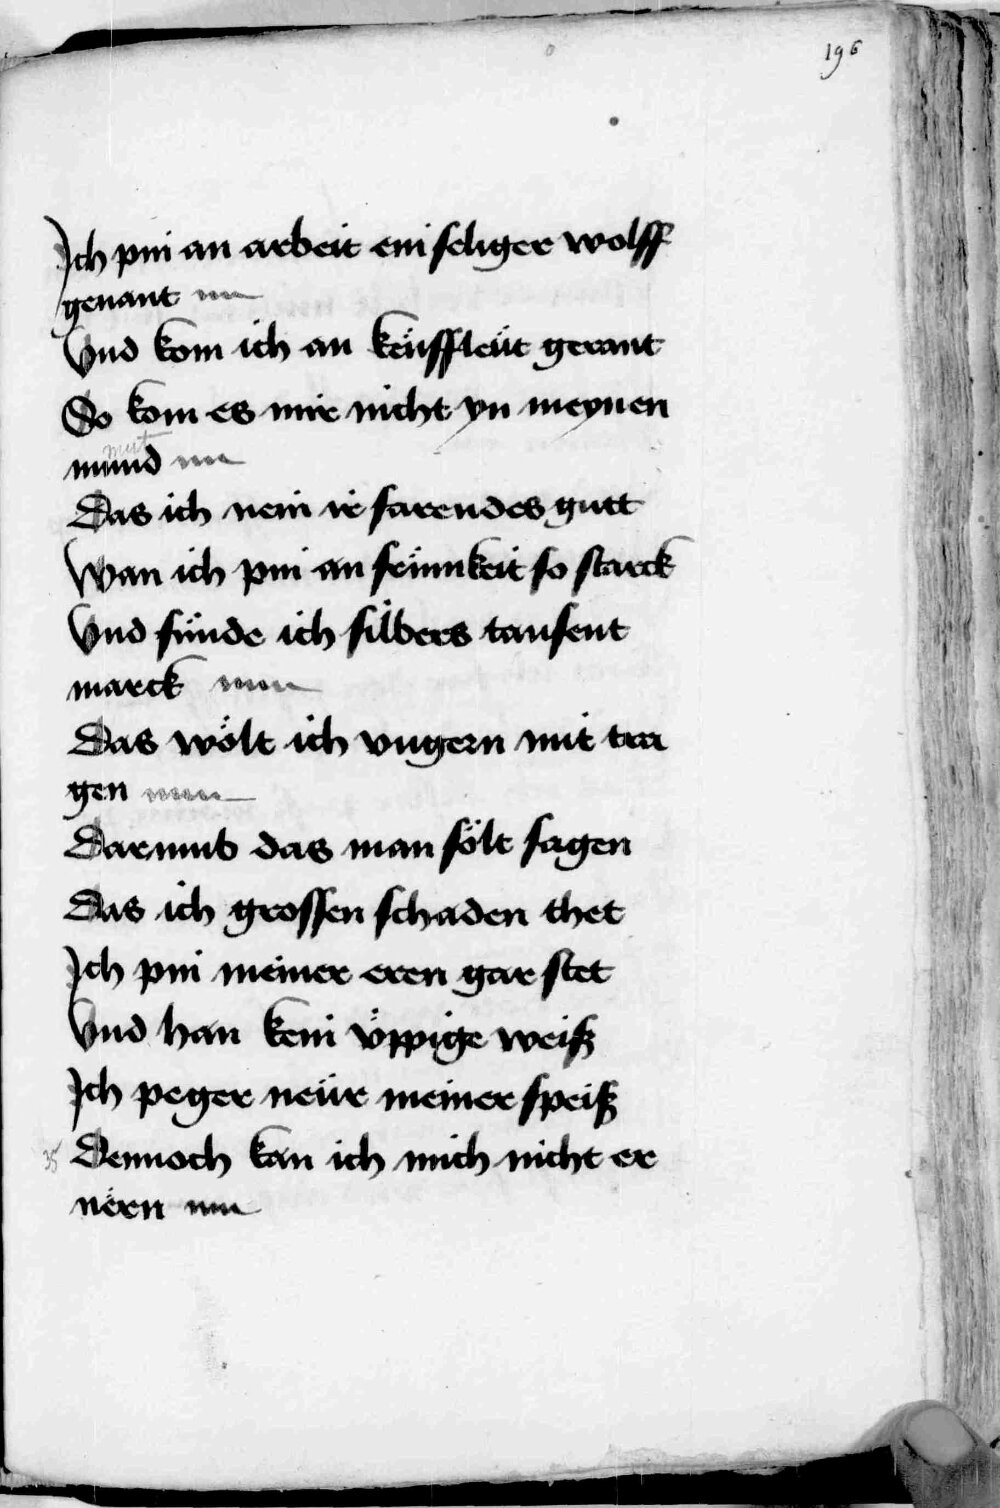 196
Ich pin an arbeit ein seliger wolff
genant
Vnd kom ich an keüffleüt gerant
So kom es mir nicht yn meynen
mut
mund
Das ich nem ir farendes gutt
Wan ich pin an frümkeit so starck
Vnd fünde ich silbers tausent
marck
Das wölt ich vngern mit tra
gen
Darumb das man sölt sagen
Das ich grossen schaden thet
Ich pin meiner eren gar stet
Vnd han kein vppige weiß
Ich peger neür meiner speiß
35 Dennoch kan ich mich nicht er
nern